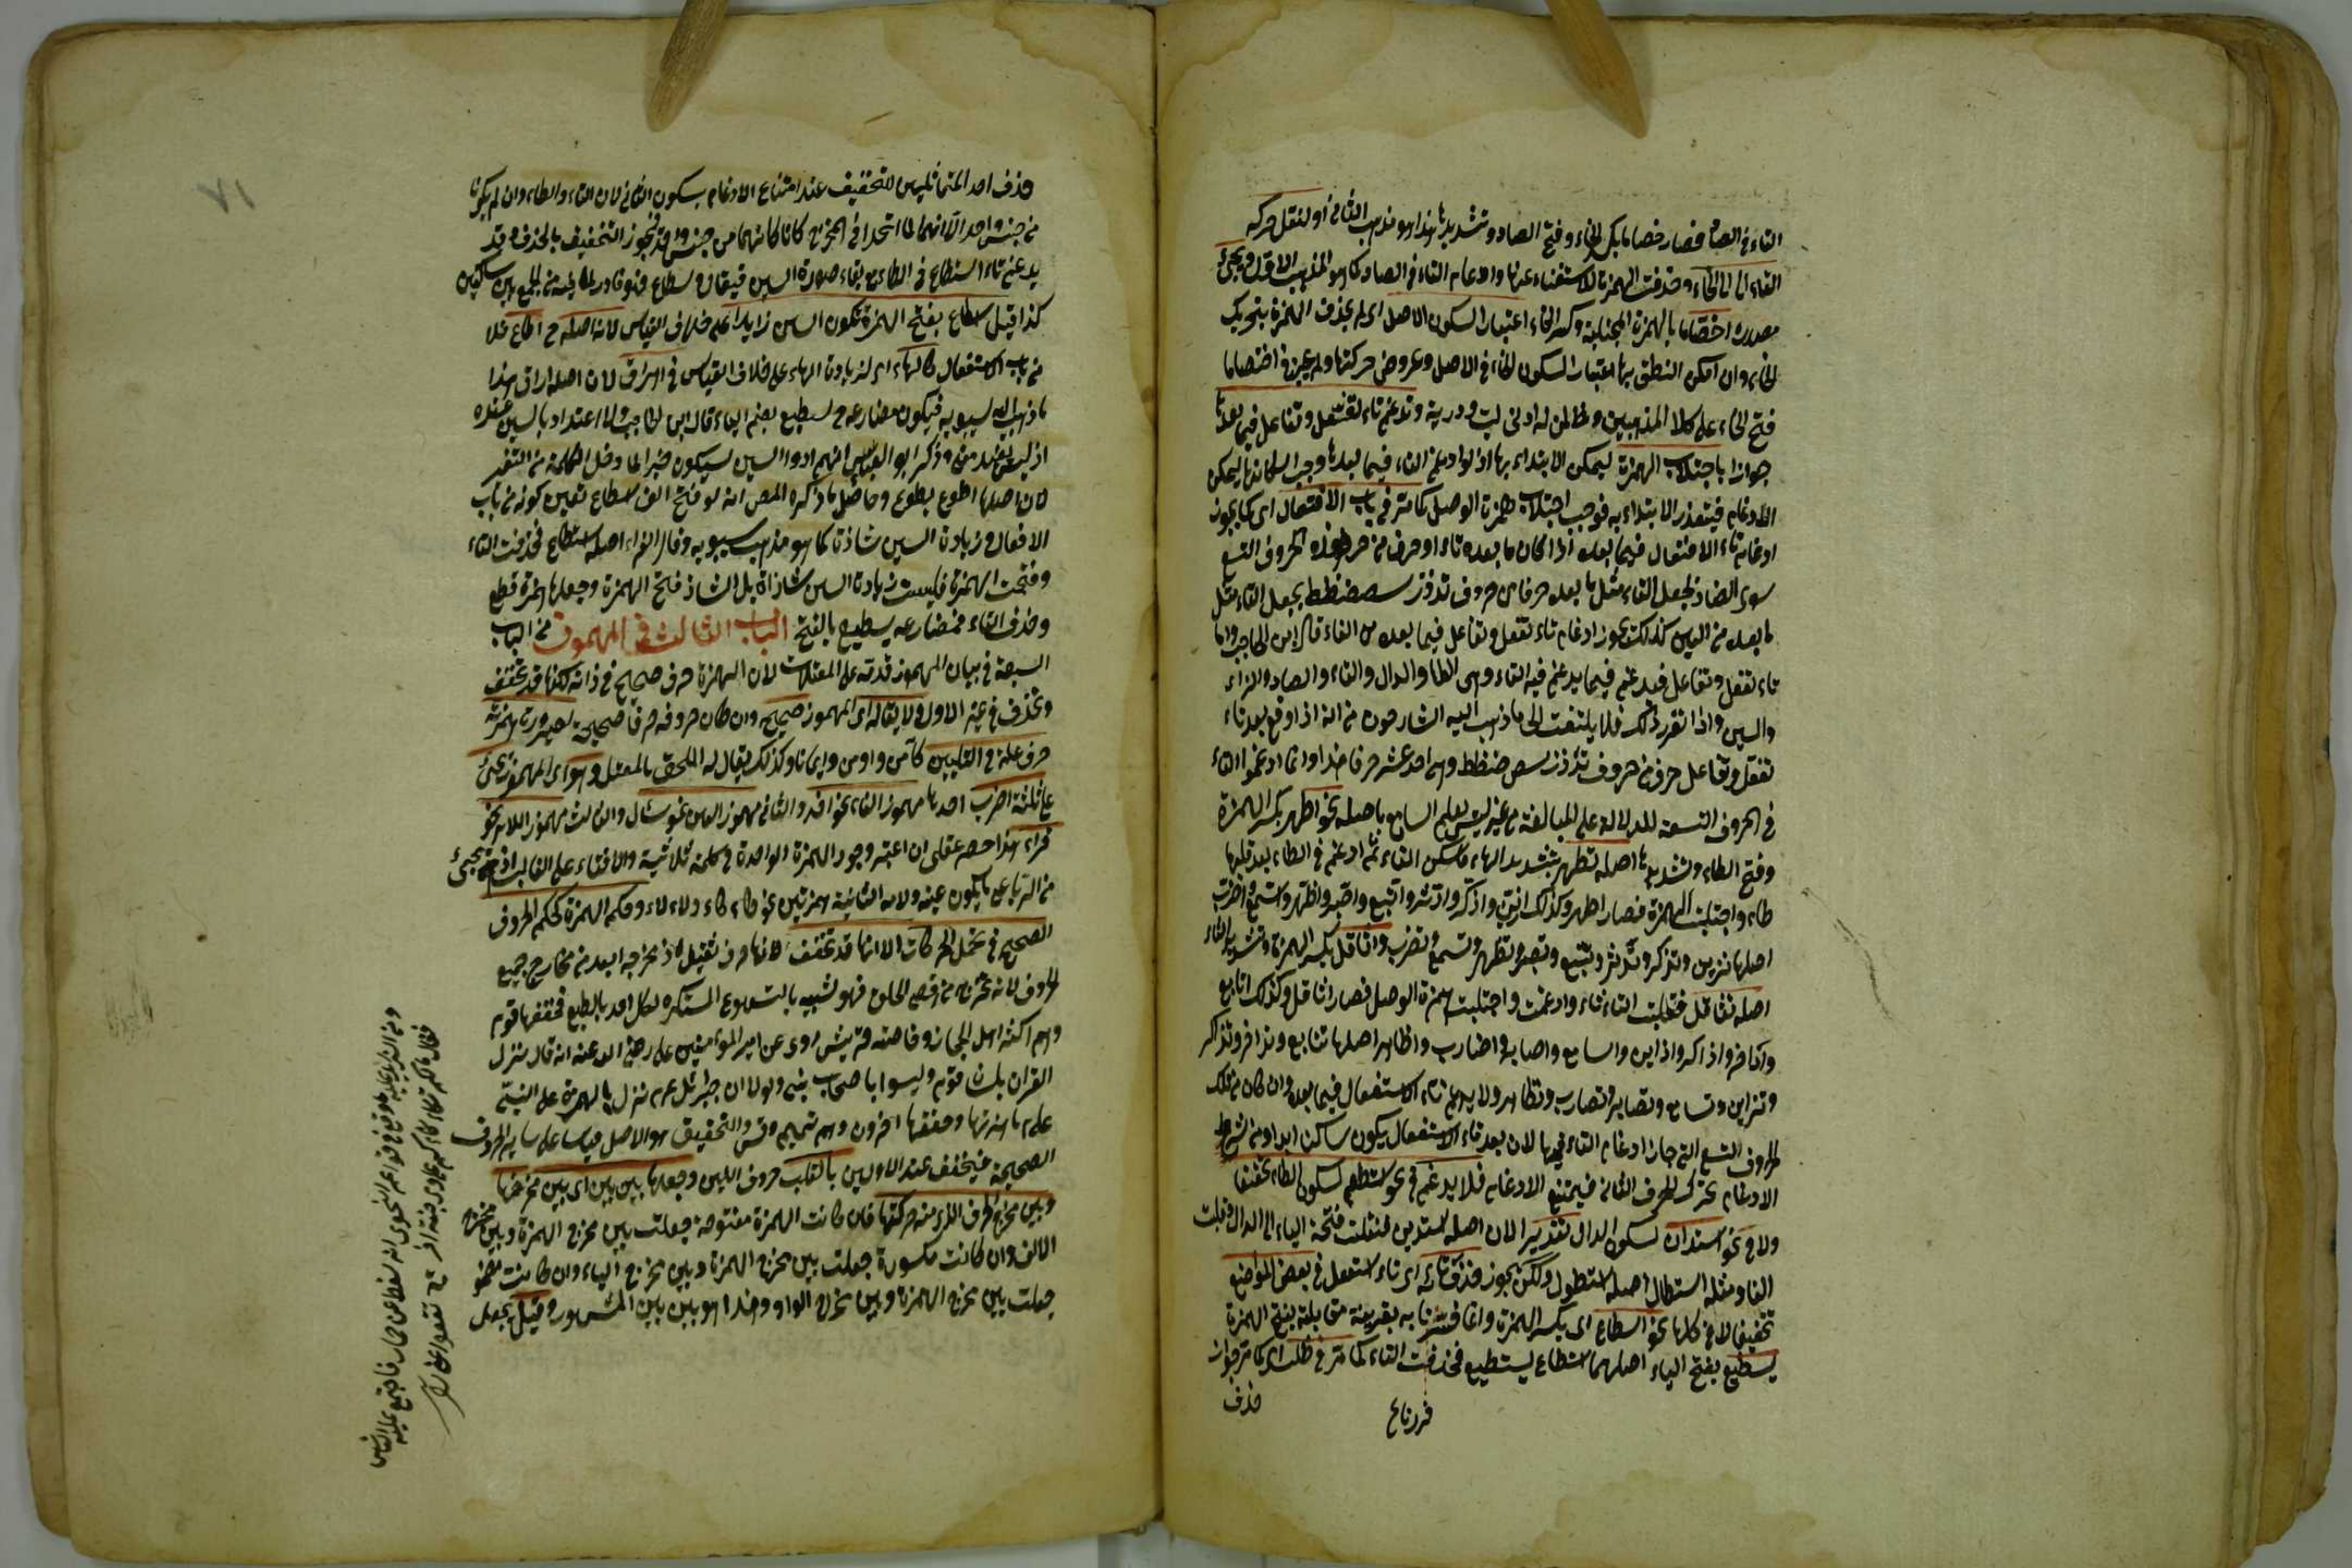 التاء في الصاد فصار خصاما بكسر الخاء وفتح الصاد وتشديدها هذا هو مذهب الثاني أو لنقل حركة
التاء الى الخاء وحذفت الهمزة للاستغناء عنها وادغام التاء في الصاد كما هو المذهب الاول ويجئ
مصدره اخصاما بالهمزة المجتلبة وكسر الخاء اعتبارا لسكون الاصل اى لم يحذف الهمزة بتحريك
الخاء وان امكن النطق بها اعتبارا لسكون الخاء في الاصل وعروض حركتها ولم يجز في اختصاما
فتح الخاء على كلا المذهبين وظ لمن له ادنى لب ودرية وتدغم تاء تفعل وتفاعل فيما بعدها
جوازا باجتلاب الهمزة ليمكن الابتداء بها اذ لو ادغم التاء فيما بعدها وجب اسكانها ليمكن
الادغام فيتعذر الابتداء به فوجب اجتلاب همزة الوصل كما مر في باب الافتعال اى كما يجوز
ادغام تاء الافتعال فيما بعده اذا كان ما بعده تاء او حرف من هذه الحروف التسع
سوى الضاد لجعل التاء مثل ما بعده حرفا من حروف تدذز سصضطظ بجعل التاء مثل
ما بعده من كذلك يجوز ادغام تاء تفعل وتفاعل فيما بعده من التاء قال ابن الحاجب واما
تاء تفعل وتفاعل فيدغم فيما يدغم فيه التاء وهى الطا والدال والثاء والصاد والزاء
والسين واذا تقرر ذلك فلا يلتفت الى ما ذهب اليه الشارحون من انه اذا وقع بعد تاء
تفعل وتفاعل حرف من حروف تدذز سص ضطظ وهى احد عشر حرفا هذا وانما ادغموا التاء
في الحروف التسعة للدلالة على المبالغة من غير لبس ليعلم السامع باصله نحو اطهر بكسر الهمزة
وفتح الطاء وتشديدها اصله تطهر بتشديد الهاء فاسكن التاء ثم ادغم في الطاء بعد قلبها
طاء واجتلبت الهمزة فصار اطهر وكذلك ازين واذكر وادثر واتبع واصبر واظهر واسمع واضرب
اصلها تزين وتذكر وتدثر وتتبع وتصبر وتظهر وتسمع وتضرب واثاقل بكسر الهمزة وتشديد الثاء
اصله تثاقل فقلبت التاء ثاء وادغمت واجتلبت همزة الوصل فصار اثاقل وكذلك اتابع
واذاكر وازاين واسامع واصابر واضارب واظاهر اصلها تتابع وتذاكر
وتزاين وتسامع وتصابر وتضارب وتظاهر ولا يدغم تاء الاستفعال فيما بعده وان كان من تلك
الحروف التسع التي جاز ادغام التاء فيها لان بعد تاء الاستفعال يكون ساكنا ابدا ومن شرط
الادغام تحرك الحرف الثاني فيمتنع الادغام فلا يدغم في نحو استطعم لسكون الطاء تحقيقا
ولا في نحو استدان لسكون الدال تقديرا لان اصله استدين فنقلت فتحة الياء الى الدال وقلبت
الفا ومثله استطال اصله استطول ولكن يجوز حذف تائه اى تاء استفعل في بعض المواضع
تخفيفا لا في كلها نحو اسطاع اى بكسر الهمزة وانما فسرنا به بقرينة مقابلة بفتح الهمزة
يسطيع بفتح الياء اصلهما استطاع يستطيع فحذفت التاء كما مر في ظلت اى كما مر جواز
حذف
حذف احد المتماثلين للتخفيف عند امتناع الادغام بسكون الثاني لان التاء والطاء وان لم يكونا
من جنس واحد الا انهما لما اتحدا في المخرج كانا كانهما من جنس واحد فيجوز التخفيف بالحذف وقد
يدغم تاء استطاع في الطاء مع بقاء صورة السين فيقال اسطاع فهو نادر لما يلزم من الجمع بين ساكنين
كذا قيل اسطاع بفتح الهمزة تكون السين زايدا على خلاف القياس لانه اصله ح اطاع فلا
من باب الاستفعال كالهاء اى لزيادة الهاء على خلاف القياس في اهراق لان اصله اراق هذا
ما ذهب اليه سيبويه فيكون مضارعه يسطيع بضم الياء قال ابن الحاجب ولا اعتداد بالسين عنده
اذ ليس وذكر ابو العباس انهم ادوا السين ليكون جبرا لما دخل الكلمة من التغير
لان اصلها اطوع يطوع وحاصل ما ذكره المصـ انه لو فتح الف اسطاع تعين كونه من باب
الافعال وزيادة السين شاذة كما هو مذهب سيبويه وقال الفراء اصله استطاع فحذفت التاء
وفتحت الهمزة فليست زيادة السين شاذة بل الشاذ فتح الهمزة وجعلها همزة قطع
وحذف التاء فمضارعه يسطيع بالفتح الباب الثالث في المهموز من الباب
السبعة في بيان المهموز قدمه على المعتلات لان الهمزة حرف صحيح في ذاته لكنها قد تخفف
وتحذف في غير الاول ولا يقال له اى المهموز صحيح وان كان حروفه حرفا صحيحة لصيرورة همزته
حرف علة في التليين كآمن واومن وايمانا وكذلك يقال له الملحق بالمعتل وهو اى المهموز يجئ
على ثلثة اضرب احدها مهموز الفاء نحو اخذ والثاني مهموز العين نحو سأل والثالث مهموز اللام نحو
قراء هذا حصر عقلى ان اعتبر وجود الهمزة الواحدة في كلمة ثلاثية والاقتاء على الغالب اذ قد يجئ
من الرباعى ما يكون عينه ولامه الثانية همزتين نحو كأكاء ولألاء وحكم الهمزة كحكم الحروف
الصحيح في تحمل الحركات الا انها قد تخفف لانها حرف ثقيل اذ مخرجه ابعد من مخارج جميع
الحروف لانه يخرج من اقصى الحلق فهو شبيه بالتهوع المستكره لكل احد بالطبع فخففها قوم
وهم اكثر اهل الحجاز وخاصة قريش روى عن امير المؤمنين على رضى الله عنه انه قال نزل
القران بلسان قوم وليسوا باصحاب نبر ولولا ان جبرئيل عم نزل بالهمزة على النبى
علم ما همزتها وحققها اخرون وهم تميم وقيس والتحقيق هو الاصل قياسا على ساير الحروف
الصحيحة فيخفف عند الاولين بالقلب حروف اللين وجعلها بين بين اى بين مخرجها
وبين مخرج الحرف الذى منه حركتها فان كانت الهمزة مفتوحة جعلت بين مخرج الهمزة وبين مخرج
الالف وان كانت مكسورة جعلت بين مخرج الهمزة وبين مخرج الياء وان كانت مضمو
جعلت بين مخرج الهمزة وبين مخرج الواو وهذا هو بين بين المشهور وقيل يجعل
النحوى انه سقط عن حمار فاجتمع عليه الناس
فقال مالكم تكأكأتم